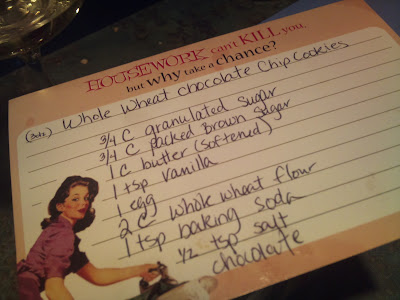 HOUSEWORK can't KILL you,
but why take a chance?
Whole Wheat Chocolate Chip Cookies
3/4 C granulated sugar
3/4 C packed Brown Sugar
1 C butter (softened)
1 tsp vanilla
1 egg
2 C whole wheat flour
1 tsp baking soda
1/2 tsp salt
chocolate